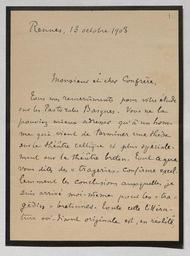 1
Rennes, 13 octobre 1903
Monsieur et cher Confrère,
Tous mes remerciments pour votre étude
sur les Pastorales Basques. Vous ne la
pouviez mieux adresser qu'à un hom-
me qui vient de terminer une thèse
sur le théâtre celtique et plus spéciale-
ment sur le théâtre breton. Tout ce que
vous dites des « tragéries » confirme excel-
lemment les conclusions auxquelles je
suis arrivé moi-même pour les « tra-
gédies » bretonnes. Toute cette littéra-
ture soi-disant originale est, en réalité